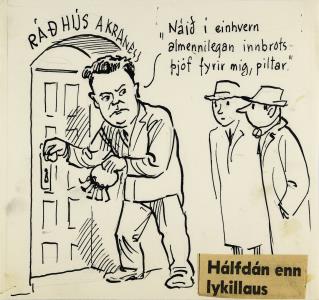 RÁÐHÚS AKRANESI
„Náið í einhvern
almennilegan innbrots-
þjóf fyrir mig, piltar."
Hálfdán enn
lykillaus